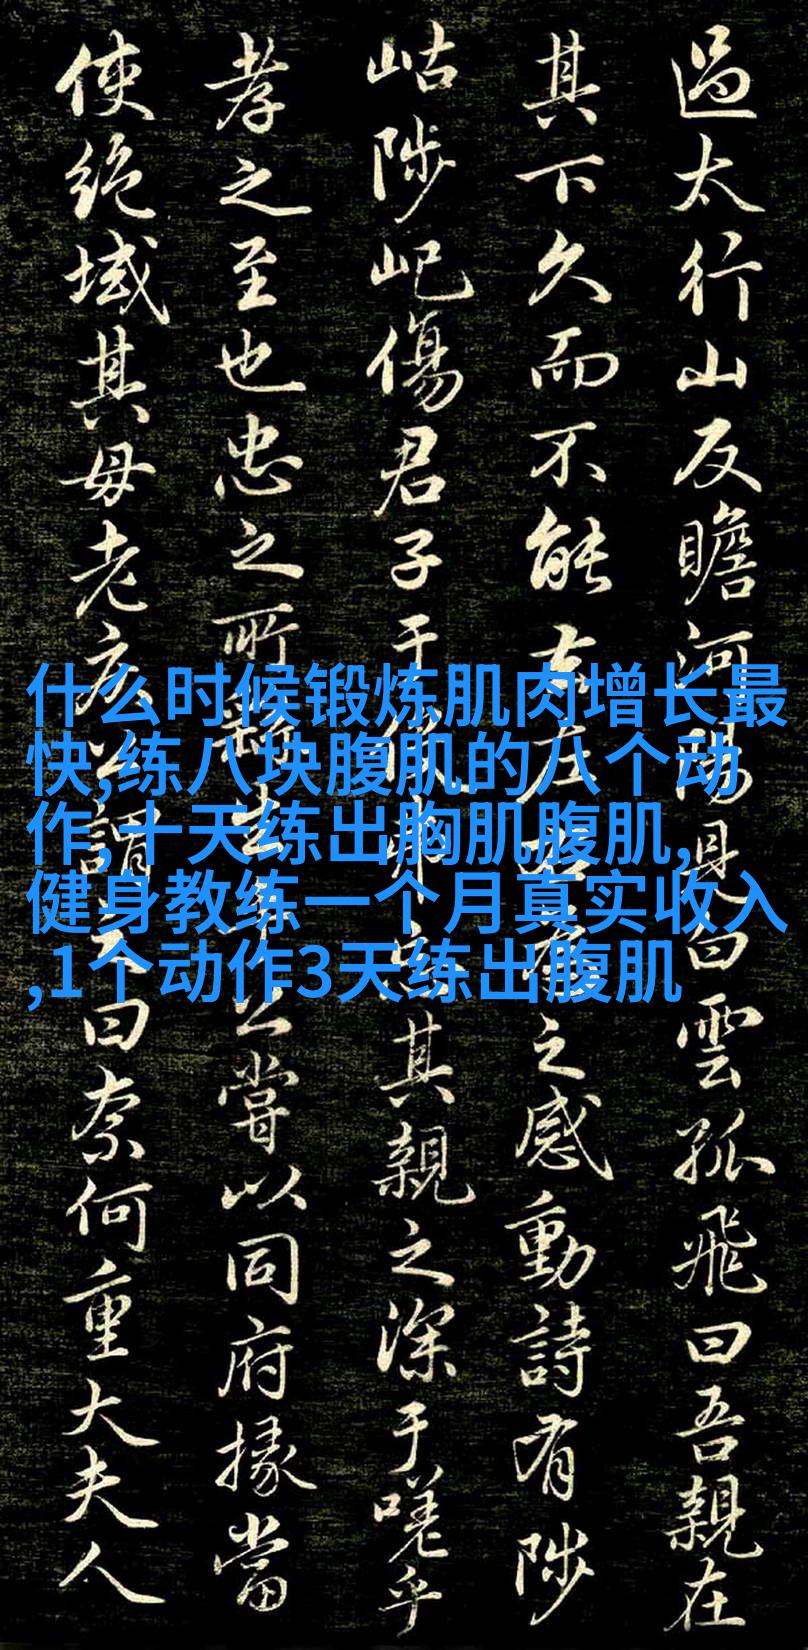 過太行山反瞻河陽見白雲孤飛曰吾親在
其下久而不能去左之感動詩有陟
岵陟屺傷君子于役其親之深于嗟乎
孝之至也忠之所出公嘗以同府掾當
使絕域其母老疾公謂曰奈何重大夫人
什么时候锻炼肌肉增长最
快,练八块腹肌的八个动
作,十天练出胸肌腹肌,
健身教练一个月真实收入
,1个动作3天练出腹肌